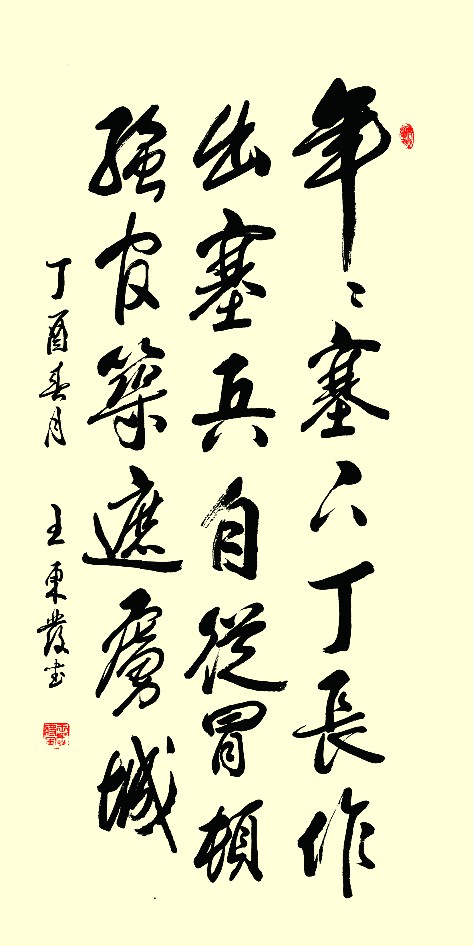 年〻塞下丁長作
出塞兵自從冒頓
強官築遮虜城
丁酉春月 王東發書